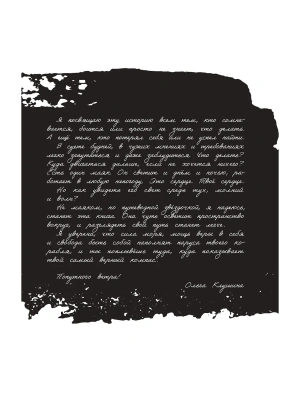 Я посвящаю эту историю всем тем, кто сомне-
вается, боится или просто не знает, что делать.
А ещё тем, кто потерял себя или не успел найти.
В суете будней, в чужих мнениях и требованиях
легко запутаться и даже заблудиться. Что делать?
Куда двигаться дальше, если не хочется ничего?
Есть один маяк. Он светит и днём и ночью, ра-
ботает в любую непогоду. Это сердце. Твоё сердце.
Но как увидеть его свет среди туч, молний
и волн?
Не маяком, но путеводной звёздочкой, я надеюсь,
станет эта книга. Она чуть осветит пространство
вокруг, и разглядеть свой путь станет легче.
Я уверена, что сила моря, мощь веры в себя
и свобода быть собой наполнят паруса твоего ко-
рабля, и ты поплывёшь туда, куда показывает
твой самый верный компас.
Попутного ветра!
Ольга